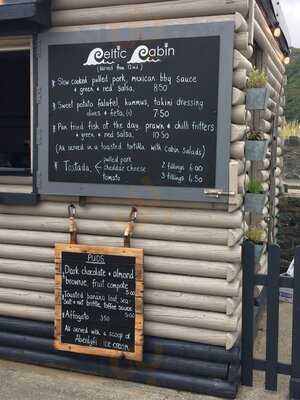 Celtic Cabin
(served from 12nn)
* Slow cooked pulled pork, mexican bbq sauce
+ green + red salsa. 8.50
* Sweet potato falafel, hummus, tahini dressing
olives + feta. (v) 7.50
* Pan fried fish of the day, prawn + chilli fritters
+ green + red salsa. 10.50
(All served in a toasted tortilla with cabin salads)
* Toastada. pulled pork
cheddar cheese
tomato
2 fillings 4.00
3 fillings 4.50
PUDS.
Dark chocolate + almond
brownie, fruit compote
5.00
* Toasted banana loaf, sea
salt + nut brittle, toffee sauce
5.00
* Affogato 3.50
All served with a scoop
of Aberdyfi ICE CREAM.